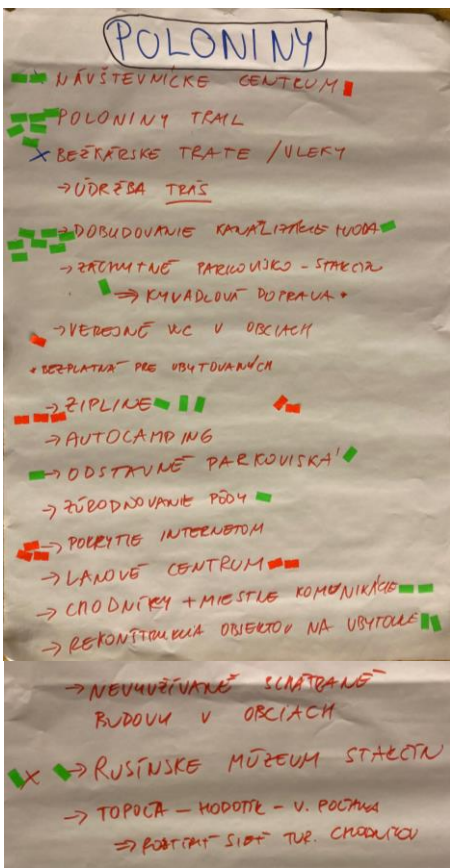 POLONINY
NÁVŠTEVNÍCKE CENTRUM
POLONINY TRAIL
BEŽKÁRSKE TRATE / VLEKY
→ ÚDRŽBA TRÁS
→ DOBUDOVANIE KANALIZÁCIE + VODA
→ ZÁCHYTNÉ PARKOVISKO - STAKČÍN
⇒ KYVADLOVÁ DOPRAVA *
→ VEREJNÉ WC V OBCIACH
* BEZPLATNÁ PRE UBYTOVANÝCH
→ ZIPLINE
→ AUTOCAMPING
→ ODSTAVNÉ PARKOVISKÁ
→ ZÚRODŇOVANIE PÔDY
→ POKRYTIE INTERNETOM
→ LANOVÉ CENTRUM
→ CHODNÍKY + MIESTNE KOMUNIKÁCIE
→ REKONŠTRUKCIA OBJEKTOV NA UBYTOV.
→ NEVYUŽÍVANÉ SCHÁTRANÉ
BUDOVY V OBCIACH
→ RUSÍNSKE MÚZEUM STAKČÍN
→ TOPOĽA - - V. POĽANA
⇒ SIEŤ TUR. CHODNÍKOV